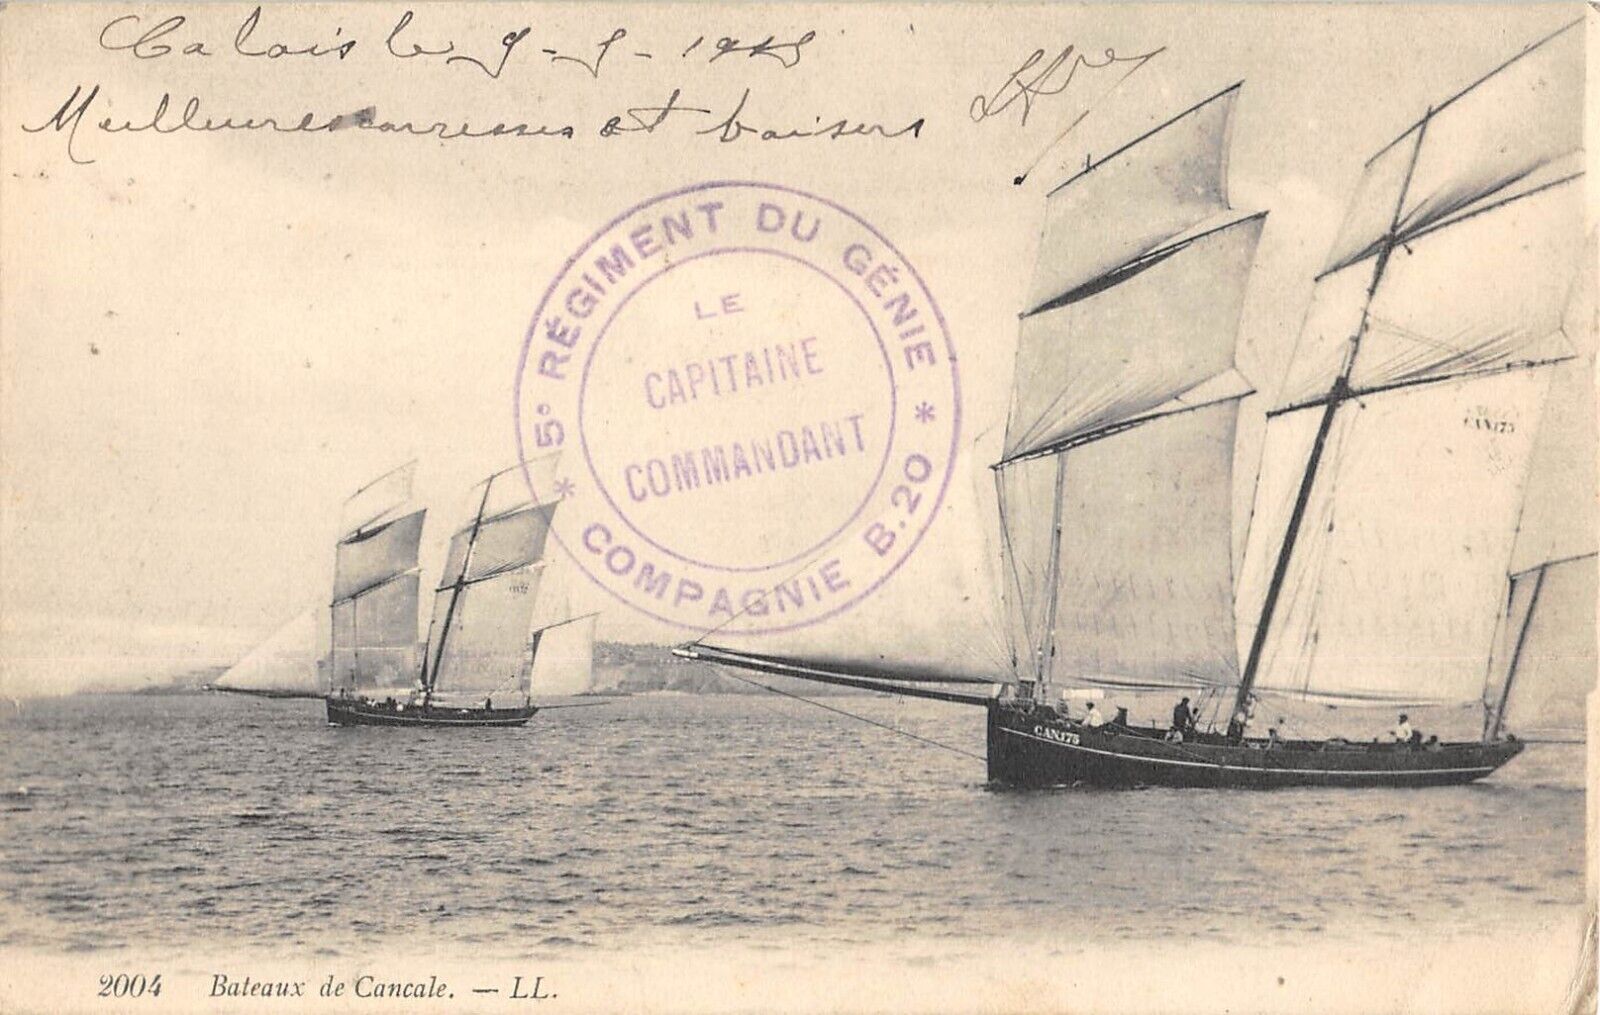 Calais le 9-5-1915
Meilleures carresses et baisers
5e RÉGIMENT DU GÉNIE
LE
CAPITAINE
COMMANDANT
* COMPAGNIE B.20 *
CAN175
CAN175
2004 Bateaux de Cancale. — LL.